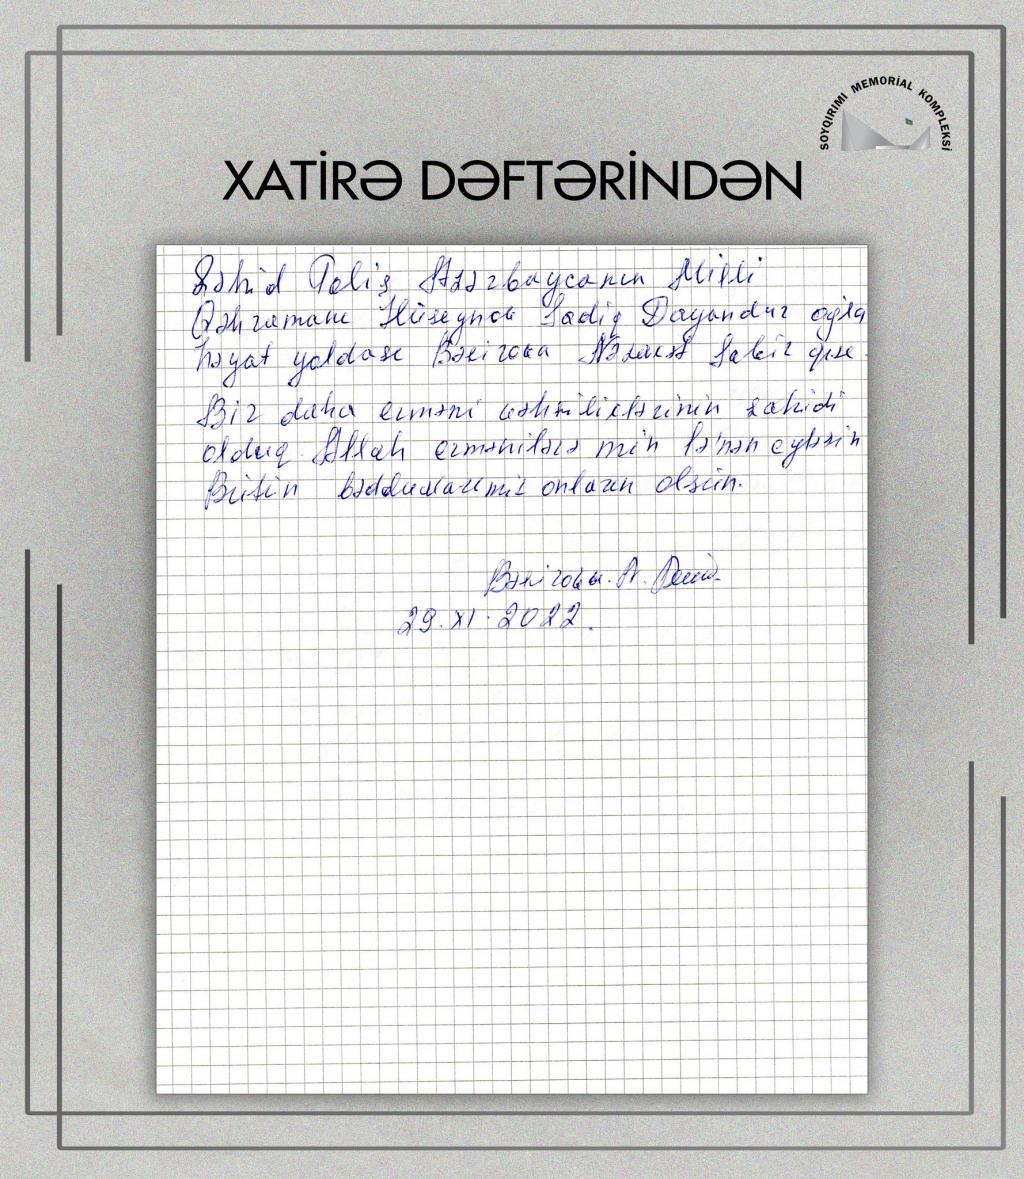 SOYQIRIMI MEMORİAL KOMPLEKSİ
XATİRƏ DƏFTƏRİNDƏN
Şəhid Polis Azərbaycanın Milli
Qəhrəmanı Hüseynov Sadiq Dayandur oğlu
həyat yoldaşı Bəkirova Nəzakət Sabir qızı
Bir daha erməni vəhşiliklərinin şahidi
olduq. Allah ermənilərə min lə'nən eyləsin
Bütün bəddualarımız onların olsun.
Bəkirova. N.
29.XI.2022.